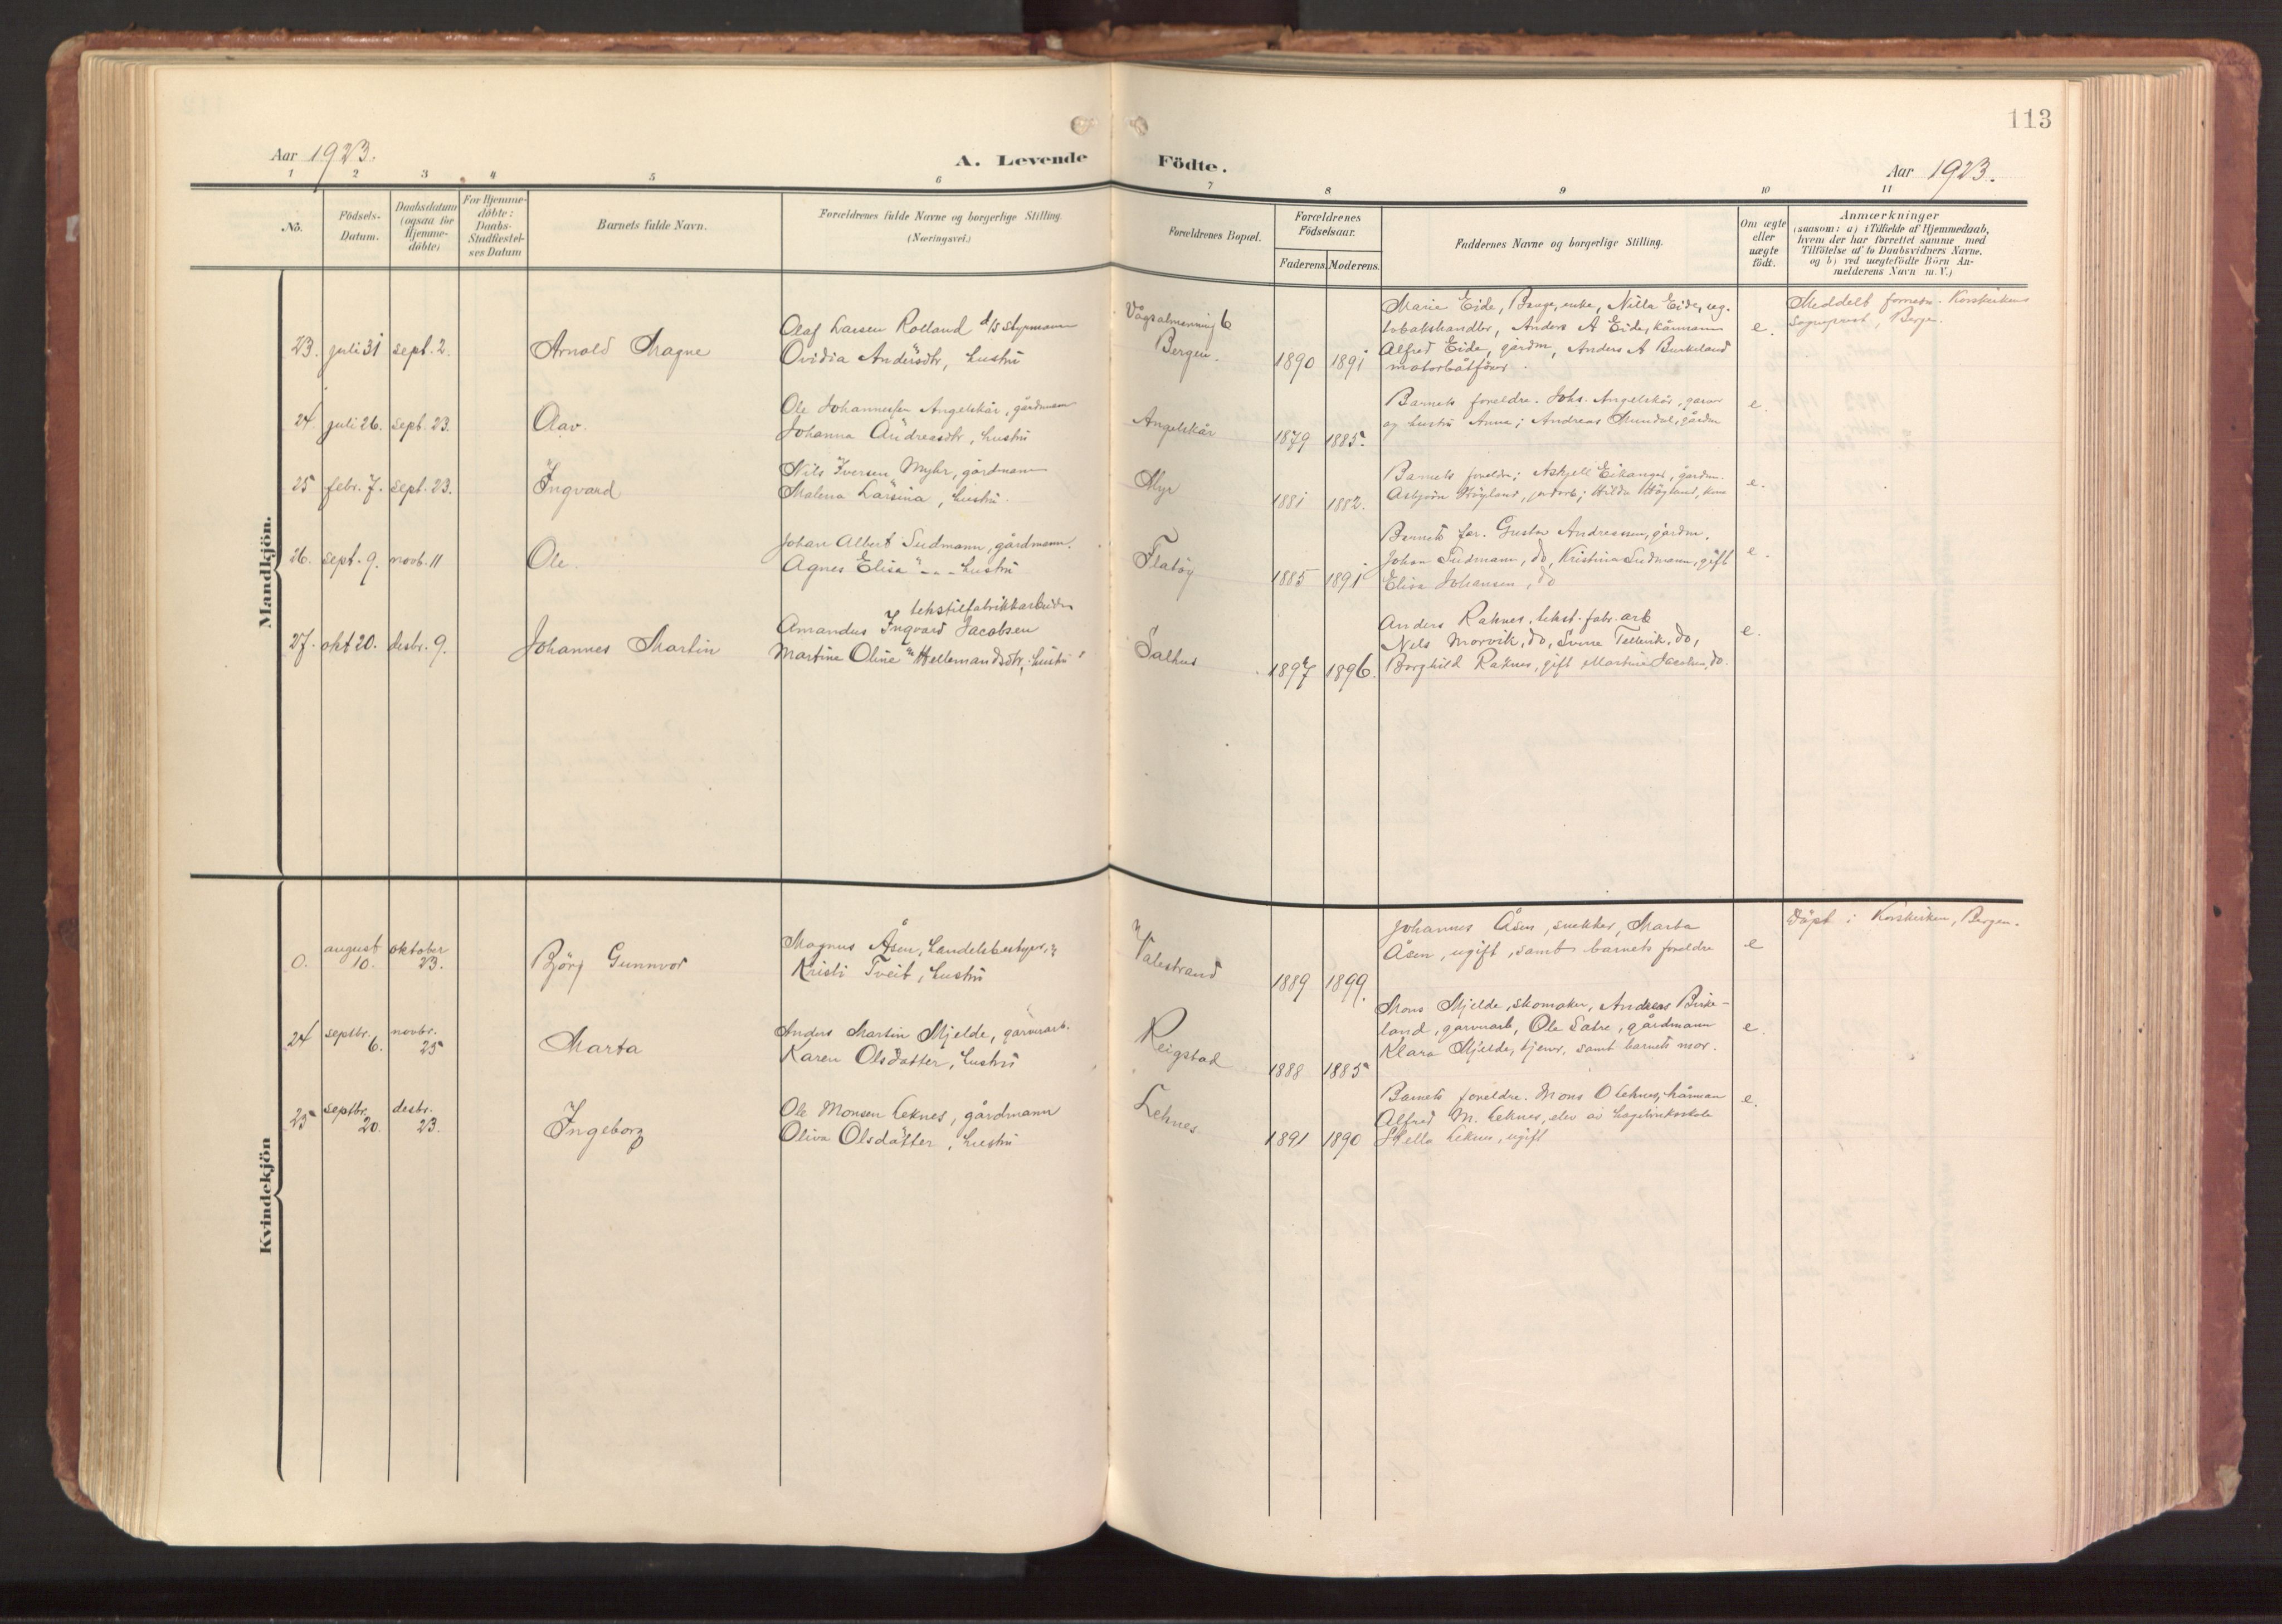 113
Aar 1923.
A. Levende Födte.
Aar 1923.
1 2 3 4 5 6 7 8 9 10 11
No.
Födsels-Datum.
Daabsdatum (ogsaa for Hjemme-döbte)
For Hjemme-döbte: Daabs-Stadfæstel-ses Datum
Barnets fulde Navn.
Forældrenes fulde Navne og borgerlige Stilling.
(Næringsvei.)
Forældrenes Bopæl.
Forældrenes Födselsaar.
Faderens. Moderens.
Faddernes Navne og borgerlige Stilling.
Om ægte eller uægte födt.
Anmærkninger
(saasom: a) i Tilfælde af Hjemmedaab, hvem der har forrettet samme med Tilföielse af to Daabsvidners Navne. og b) ved uægtefödte Börn An-melderens Navn m.V.)
Mandkjön.
23. juli 31 sept. 2. Arnold Magne
Olaf Larsen Rolland d/s styrmann
Ovidia Andersdtr, hustru
Vågsalmenning 6
Bergen.
1890 1891
Maria Eide, Bauge, enke, Nilla Eide, ug.
tobakshandler, Anders A Eide, kårmann
Alfred Eide, gårdm, Anders A Burkeland
motorbåtförer.
e.
Korskirkens
Sogneprest, Bergen.
24. juli 26. sept. 23. Olav.
Ole Johannessen Angelskår, gårdmann
Johanna Andreasdtr, hustru
Angelskår
1879 1885.
Barnets foreldre. Johs. Angelskår, garver
og hustru Anna; Andreas Mundal, gårdm
e.
25 febr. 7. sept. 23. Ingvard
Nils Iversen Myhr, gårdmann
Malena Larsina, hustru.
Myr
1881 1882.
Barnets foreldre; Askjell Eikanger, gårdm.
Asbjörn Högland, jordarb; Hilda Högland, kone
e.
26. sept. 9. novb. 11 Ole.
Johan Albert Sudmann, gårdmann.
Agnes Elisa " - " - hustru
Flatöy
1885 1891
Barnets far. Gustav Andreassen, gårdm.
Johan Sudmann, do, Kristina Sudmann, gift
Elisa Johansen, do
e.
27. okt 20. desbr. 9. Johannes Martin
tekstilfabrikkarbeider
Amandus Ingvard Jacobsen
Martine Oline Hellemandsdtr, hustru
Salhus
1897 1896.
Anders Raknes, tekst. fabr. arb
Nels Morvik, do, Sverre Tellevik, do,
Borghild Raknes, gift Martine Jacobsen, do.
e.
Kvindekjön
0. august 10. oktober 23. Björg Gunnvor
Magnus Åsen, handelsbestyrer,
Kristi Tveit, hustru
Valestrand
1889 1899.
Johannes Åsen, snekker, Marta
Åsen, ugift, samt barnets foreldre
e
Döpt i Korskirken, Bergen.
24 septbr. 6. novbr. 25 Marta
Anders Martin Mjelde, garverarb.
Karen Olsdatter, hustru
Reigstad
1888 1885
Mons Mjelde, skomaker, Andreas Birke-
land, garverarb, Ole Sætre, gårdmann
Klara Mjelde, tjener, samt barnets mor.
e.
25 septbr. 20. desbr. 23. Ingeborg
Ole Monsen Leknes, gårdmann
Oliva Olsdatter, hustru
Leknes
1891 1890
Barnets foreldre. Mons O Leknes, kårmann
Alfred M. Leknes, elev av
Leknes, ugift
e.